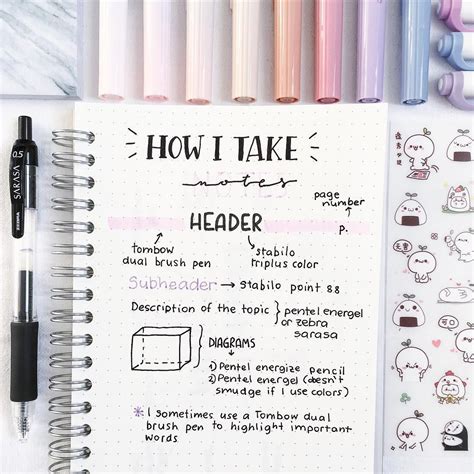 HOW I TAKE
notes
page
number
HEADER
p.
tombow
dual brush pen
stabilo
triplus color
Subheader → stabilo point 88
Description of the topic } pentel energel
or zebra
sarasa
DIAGRAMS
1) Pentel energize pencil
2) Pentel energel (doesn't
smudge if I use colors)
* I sometimes use a Tombow dual
brush pen to highlight important
words
0.5
SARASA